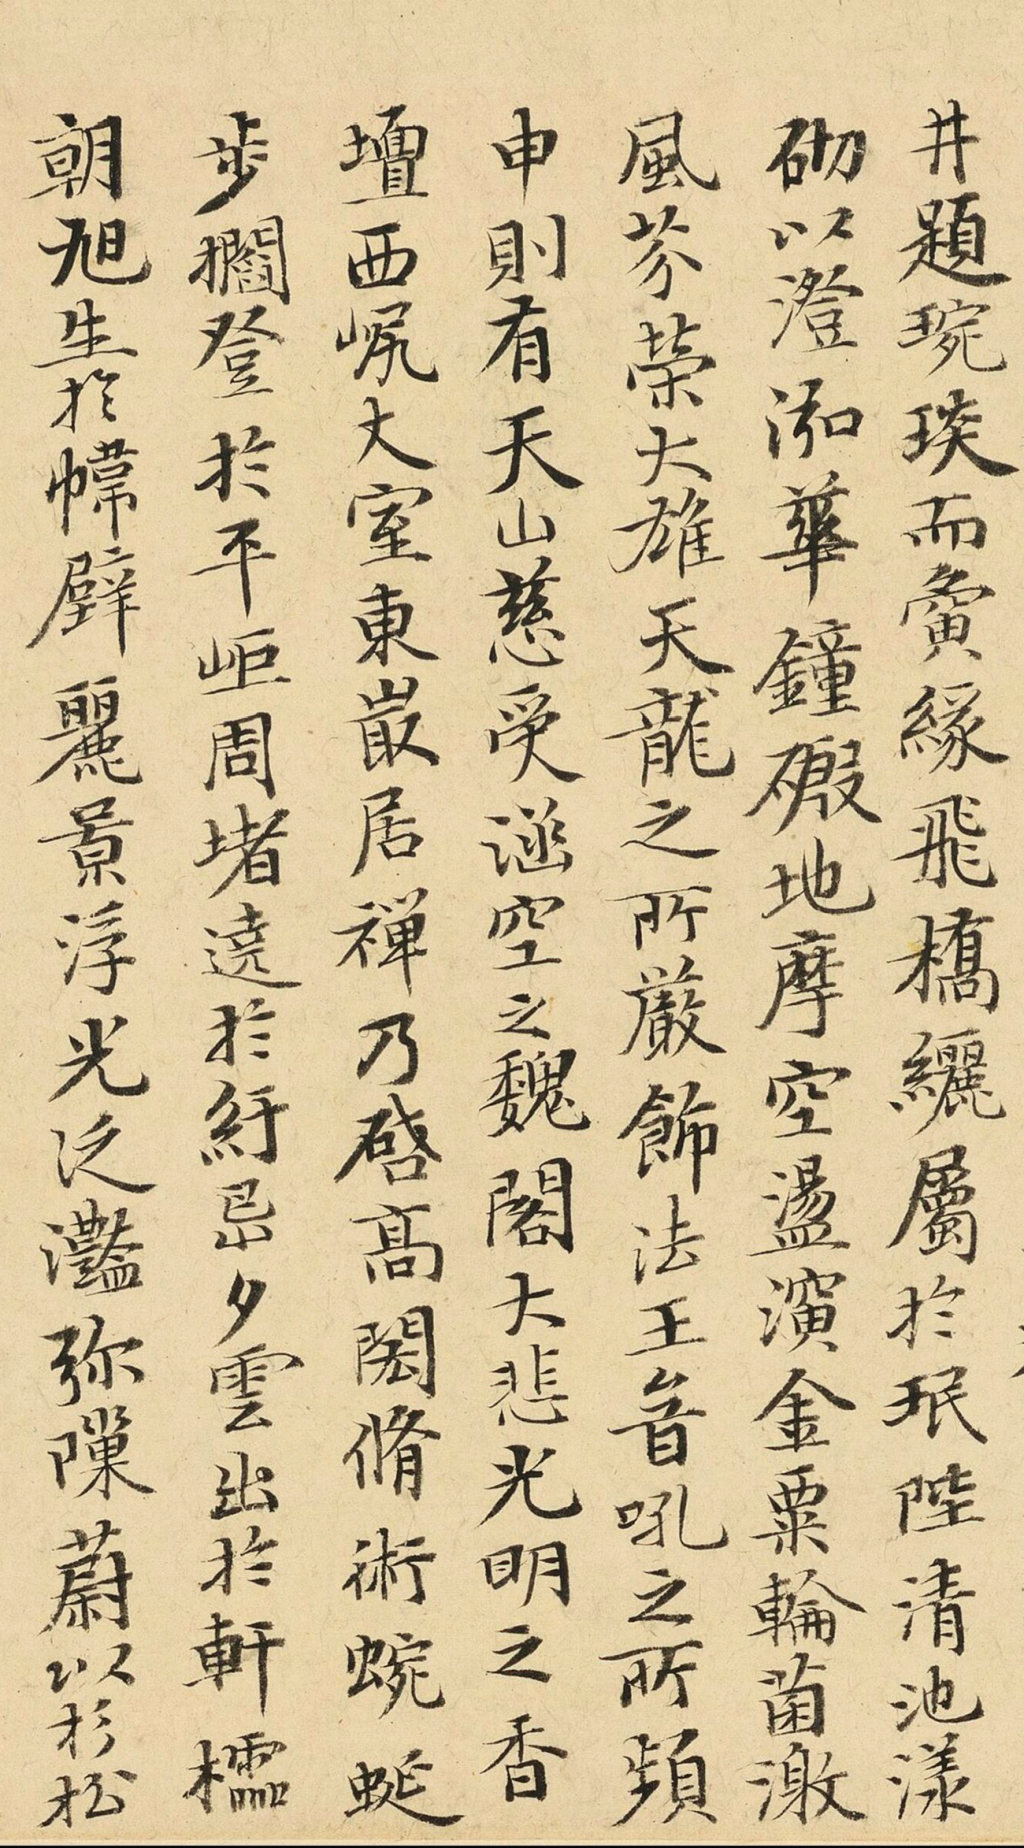 井題琬琰而夤緣飛橋纚屬於珉陛清池漾
砌以澄泓華鐘礟地摩空盪演金粟輪菌激
風芬榮大雄天龍之所嚴飾法王音吼之所頻
申則有天山慈受涵空之魏閣大悲光明之香
壇西㞕大室東嵓居禪乃啓高閎脩術蜿蜒
步櫩登於平岠周堵遶於紆㟭夕雲出於軒櫺
朝旭生於幃壁麗景浮光泛灩弥隟蔚以杉松